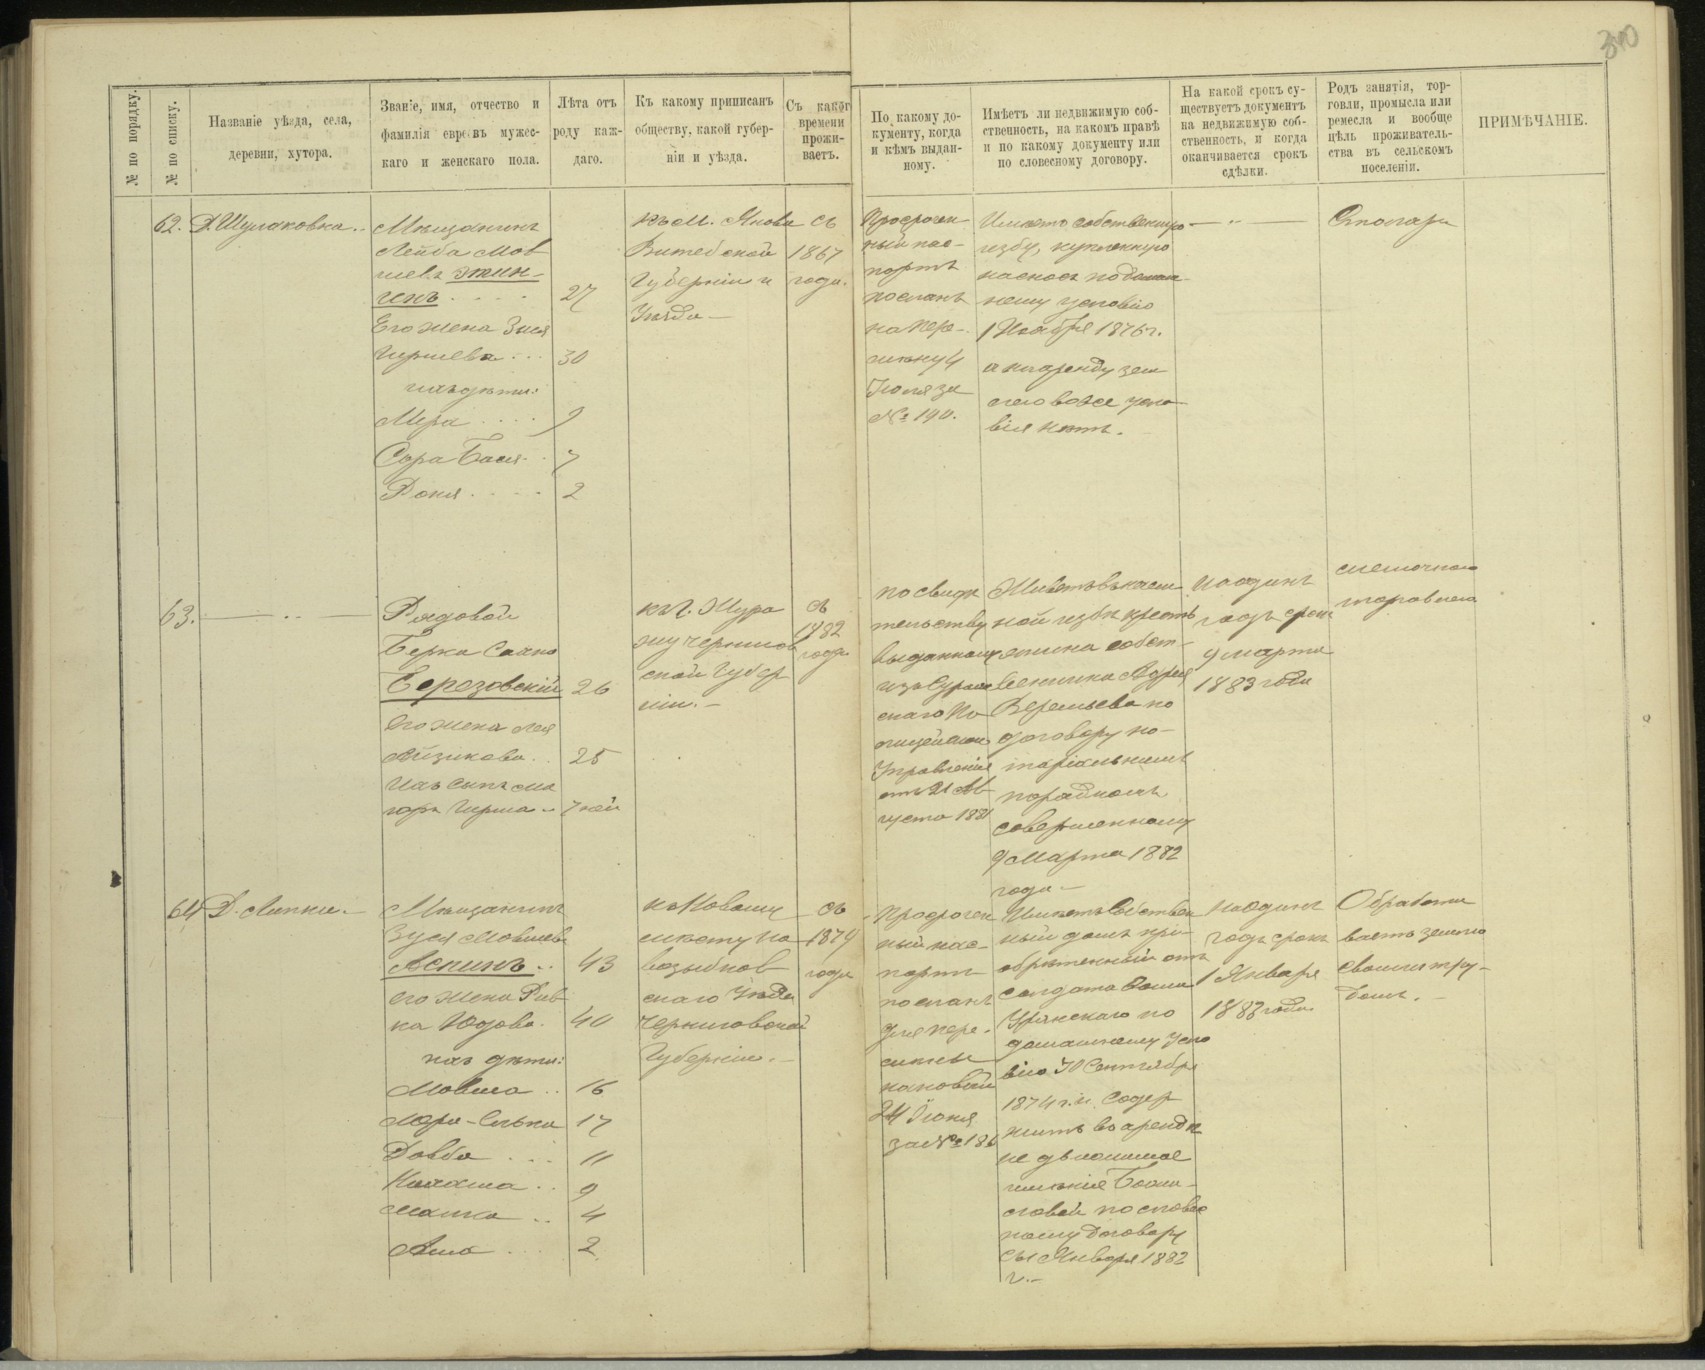 300
№ по порядку.
№ по списку.
Названіе уѣзда, села,
деревни, хутора.
Званіе, имя, отчество и
фамилія евреевъ мужес-
каго и женскаго пола.
Лѣта отъ
роду каж-
даго.
Къ какому приписанъ
обществу, какой губер-
ніи и уѣзда.
Съ какого
времени
прожи-
ваетъ.
По какому до-
кументу, когда
и кѣмъ выдан-
ному.
Имѣетъ ли недвижимую соб-
ственность, на какомъ правѣ
и по какому документу или
по словесному договору.
На какой срокъ су-
ществуетъ документъ
на недвижимую соб-
ственность, и когда
оканчивается срокъ
сдѣлки.
Родъ занятія, тор-
говли, промысла или
ремесла и вообще
цѣль проживатель-
ства въ сельскомъ
поселеніи.
ПРИМѢЧАНІЕ.
62.
Д. Шумаковка
Мѣщанинъ
Лейба Мов
шевъ
27
Его жена Зися
Гиршева 30
ихъ дѣти:
Мера 9
Сора Бася 7
Роня 2
къ м. Янови
Витебской
Губерніи и
Уѣзда
съ
1867
года.
Просрочен
ный пас-
портъ
посланъ
на пере-
мѣну 4
Іюля за
№ 190.
Имѣетъ собственную
избу, купленную
на сносъ по домаш
нему условію
1 Ноября 1876 г.
а на аренду зем
ли вовсе усло
вія нѣтъ.
Столяръ
63.
Рядовой
Берка
Березовскій 26
Его жена Лея
Айзикова 25
ихъ сынъ
Гирша
къ г.
Чернигов
ской Губер
ніи.
съ
1882
года
по свидѣ
тельству
выданному
изъ Сураж
скаго По
лицейскаго
Управленія
отъ 21 Ав
густа 1881
Живетъ въ наем
ной избѣ кресть
янина собст-
венника Андрея
Веремьева по
договору но-
таріальнымъ
порядкомъ
совершенному
9 Марта 1882
года
на одинъ
годъ срокъ
9 марта
1883 года
мелочною
торговлею
64
Д. Липки.
Мѣщанинъ
Зуся Мовшевъ
Аскинъ 43
его жена Рив
ка Юдова 40
ихъ дѣти:
Мовша 16
17
Довба 11
9
4
2
къ Новому
мѣсту Но
возыбков
скаго Уѣзда
Черниговской
Губерніи.
съ
1874
года
Просрочен
ный пас-
портъ
посланъ
для пере-
мѣны
на новый
24 Іюня
за № 186
Имѣетъ собствен
ный домъ прі-
обрѣтенный отъ
солдата
по
домашнему усло
вію 30 Сентября
1874 г. и содер
житъ въ арендѣ
не движимое
имѣніе
по словес
ному договору
съ 1 Января 1882
г.
на одинъ
годъ срокъ
1 Января
1883 года
Обработы
ваетъ землю
своими тру-
дами.